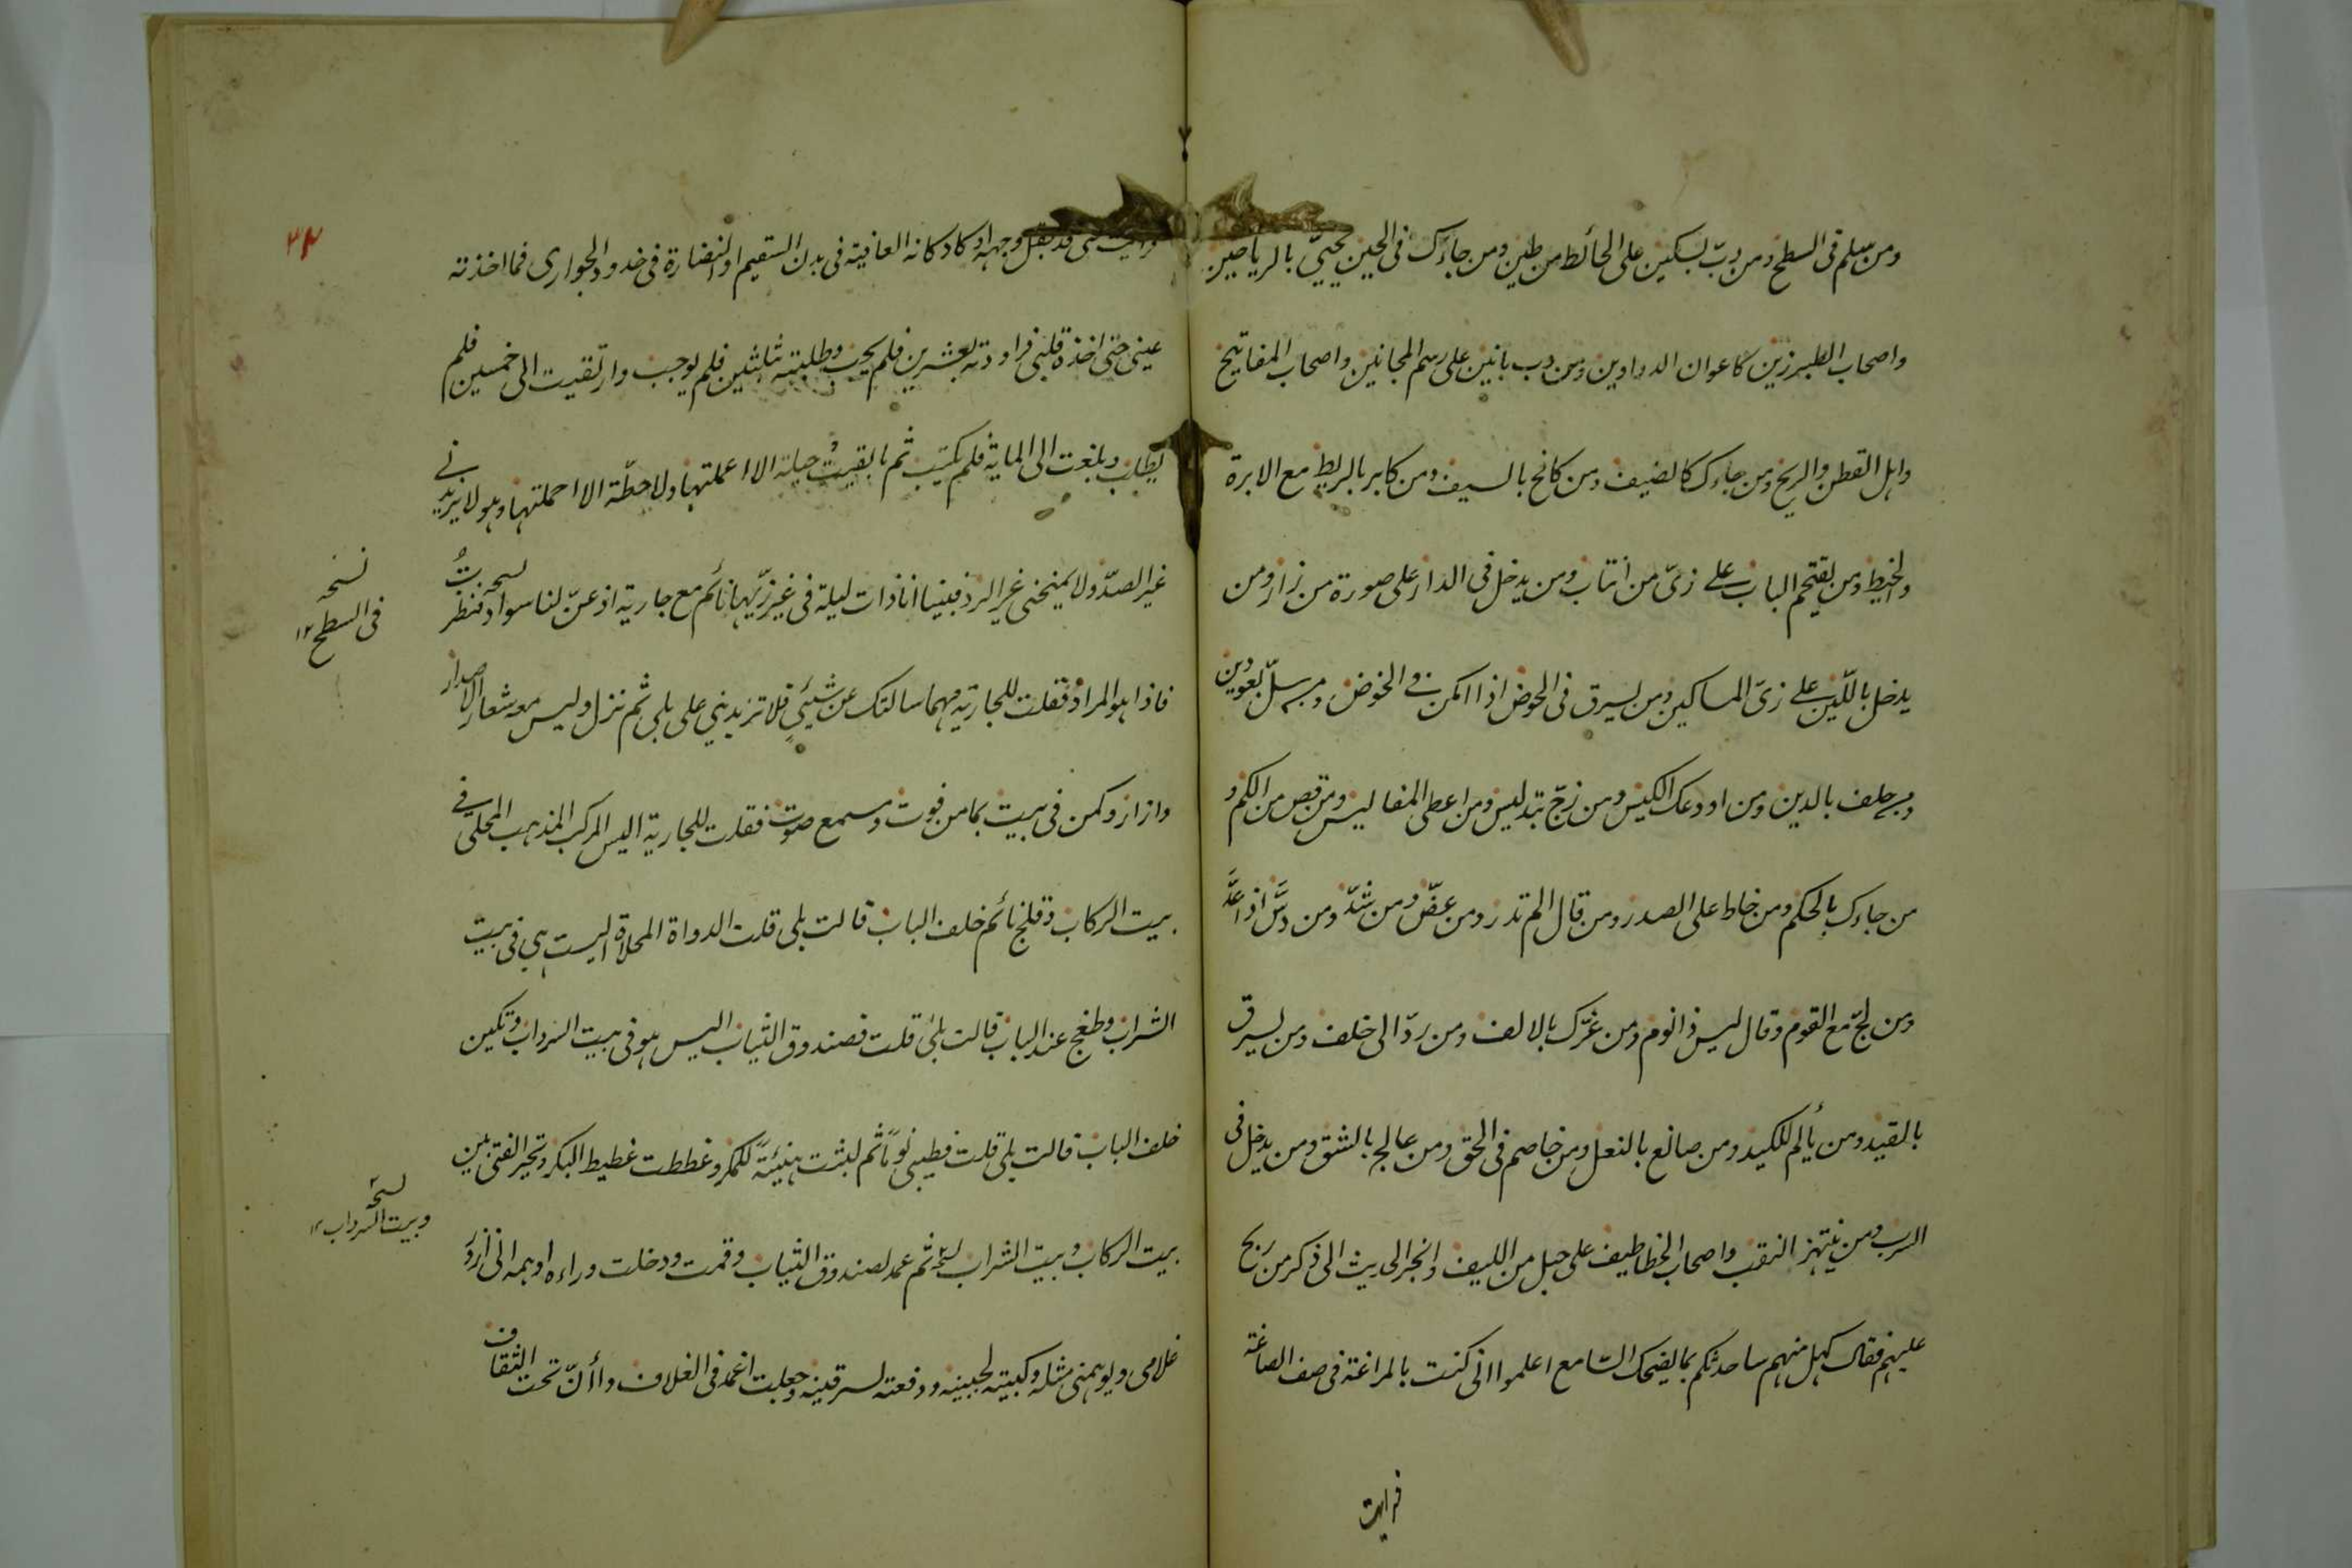 ومن سلم فى السطح ومن دبّ بسكين على الحائط من طين ومن جاءك فى الحين يحيّى بالرياحين
واصحاب الطبرزين كاعوان الدواوين ومن دب بانين على رسم المجانين واصحاب المفاتيح
واهل القطن والريح ومن جاءك كالضيف ومن كافح بالسيف ومن كابر بالربط مع الابرة
والخيط ومن يقتحم الباب على زىّ من انتاب ومن يدخل فى الدار على صورة من زار ومن
يدخل باللين على زىّ المساكين ومن يسرق فى الحوض اذا امكن فى الخوض ومن سلّ بعودين
ومن حلف بالدين ومن اودعك الكيس ومن زجّ بتدليس ومن اعطى المفاليس ومن قص من الكم و
من جاءك بالحكم ومن خاط على الصدر ومن قال الم تدر ومن عضّ ومن شدّ ومن دسّ اذا عدّ
ومن لجّ مع القوم وقال ليس ذا نوم ومن غرّك بالالف ومن ردّ الى خلف ومن يسرق
بالقيد ومن يألم للكيد ومن صانع بالنعل ومن خاصم فى الحق ومن عالج بالشق ومن يدخل فى
السرب ومن ينتهز النقب واصحاب الخطاطيف على حبل من الليف وانجر الحديث الى ذكر من ربح
عليهم فقال كهل منهم ساحدثكم بما يضحك السامع اعلموا انى كنت بالمراغة فى صف الصاغة
فرايت
٣٢
فرايت فتى قد بقل وجهه او كاد كانه العافية فى بدن السقيم او النضارة فى خدود الجوارى فما اخذته
عينى حتى اخذه قلبى فراودته بعشرين فلم يجب وطلبته بثلثين فلم يوجب وارتقيت الى خمسين فلم
يطلب وبلغت الى الماية فلم يكتب ثم ما بقيت حيلة الا اعملتها ولا حطّة الا احملتها وهو لا يزيدنى
غير الصدّ ولا يمنحنى غير الرد فبينا انا ذات ليلة فى غير زيّها نائم مع جارية اذ عنّ لنا سواد فنظرتُ نسخه
نسخه
فى السطح ١٢
فاذا هو المراد فقلت للجارية مهما سالتك عن شيئ فلا تزيدينى على بلى ثم نزل وليس معه شعار الاصدار
وازار وكمن فى بيت بمامن فوت ومسمع صوت فقلت للجارية اليس المركب المذهب المحلى فى
بيت الركاب وقلج نائم خلف الباب قالت بلى قلت الدواة المحلاة اليست هى فى بيت
الشراب وطغج عند الباب قالت بلى قلت فصندوق الثياب اليس هو فى بيت السرداب وتكين
خلف الباب قالت بلى قلت فطيبى نوماً ثم لبثت هنيئة للمكر وغططت غطيط البكر وتحير الفتى بين
بيت الركاب وبيت الشراب نسخه ثم عمد لصندوق الثياب وقمت ودخلت وراءه اوهمه انى ازور
نسخه
وبيت السرداب ١٢
غلامى ويوهمنى مثله وكبيته لجبينه ودفعته لسرقينه وجعلت اغمد فى الغلاف وأأنّ تحت الثقاف